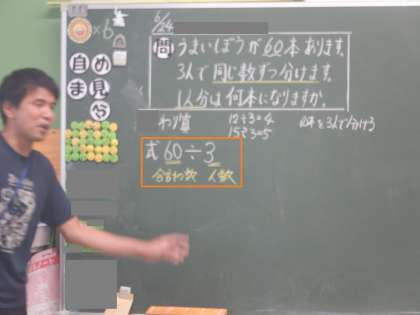 ×6
6/24
問 うまいぼうが60本あります。
3人で同じ数ずつ分けます。
1人分は何本になりますか。
自ま
め見やす
わり算
12÷3=4
15÷3=5
60本を3人で分ける
式 60÷3
全部の数 人数